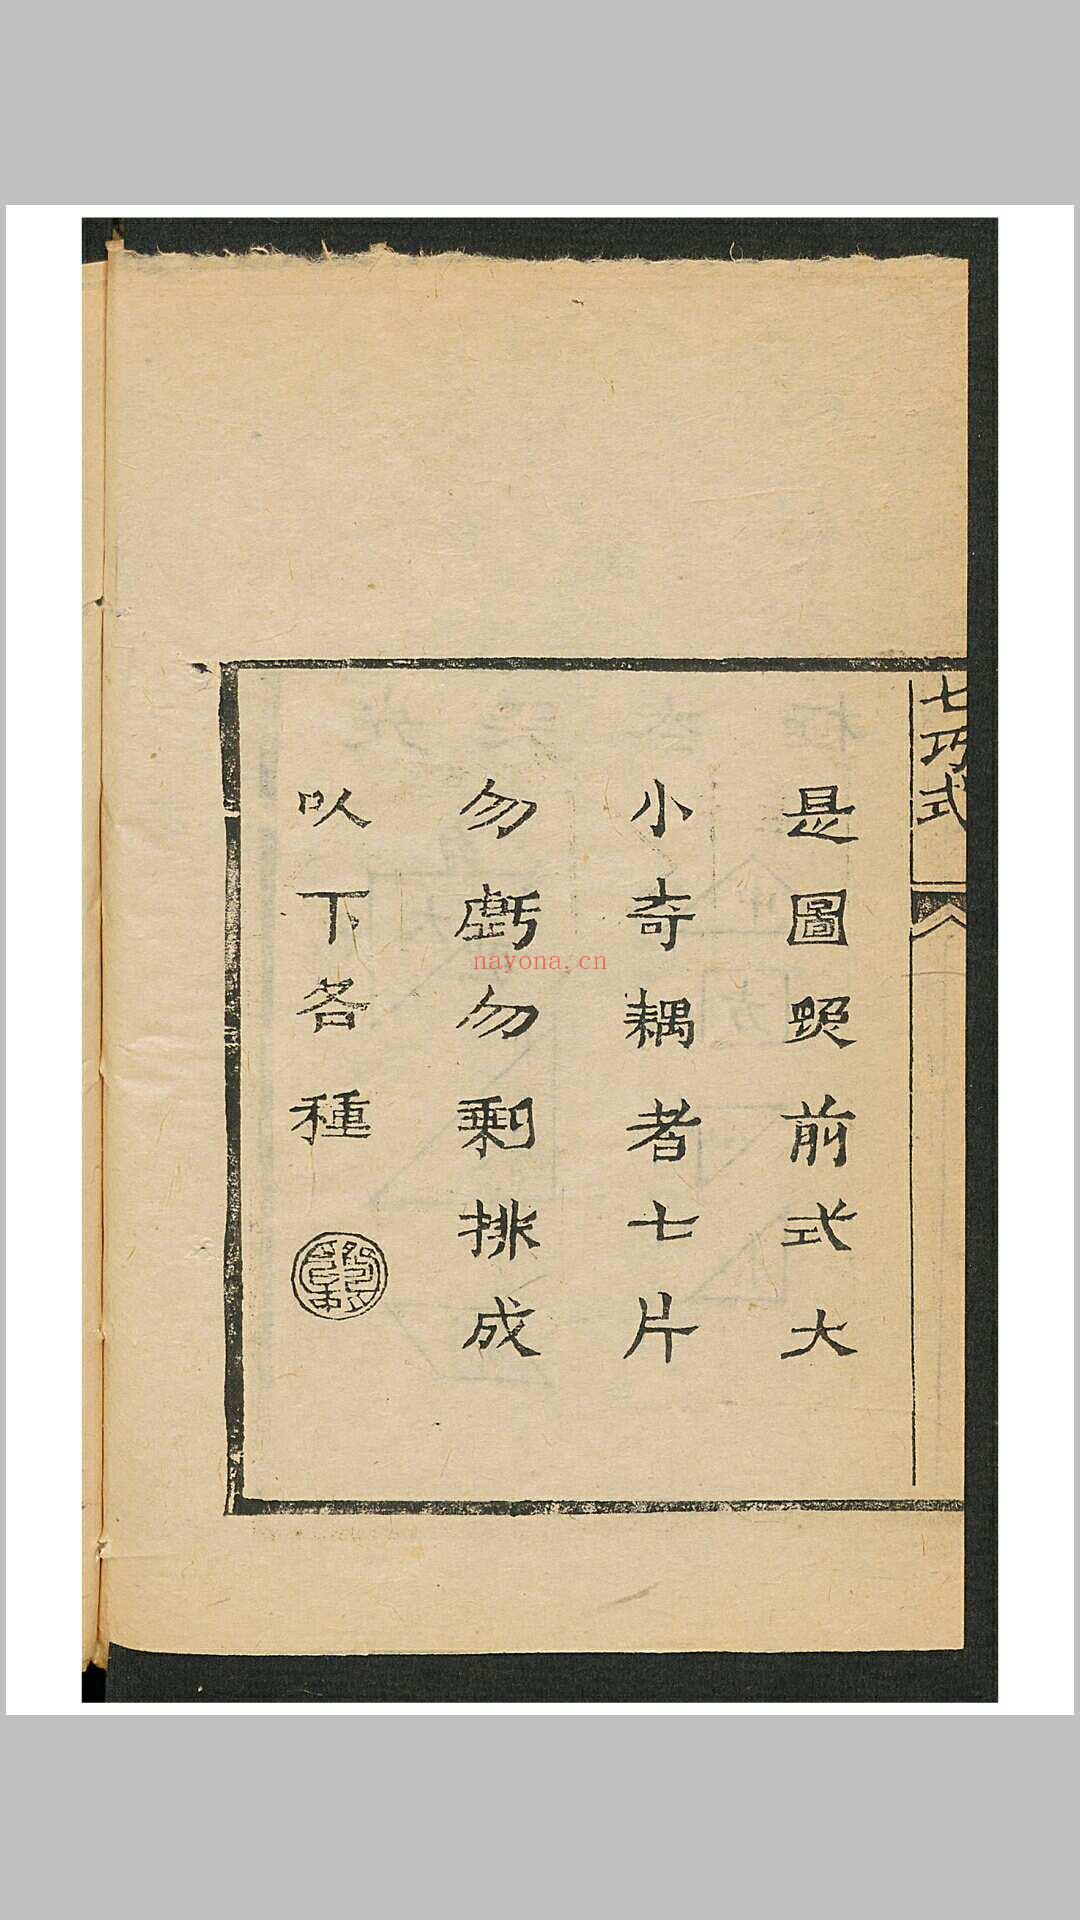 七巧式
是圖照前式大
小奇耦者七片
勿虧勿剩排成
以下各種
nayona.cn